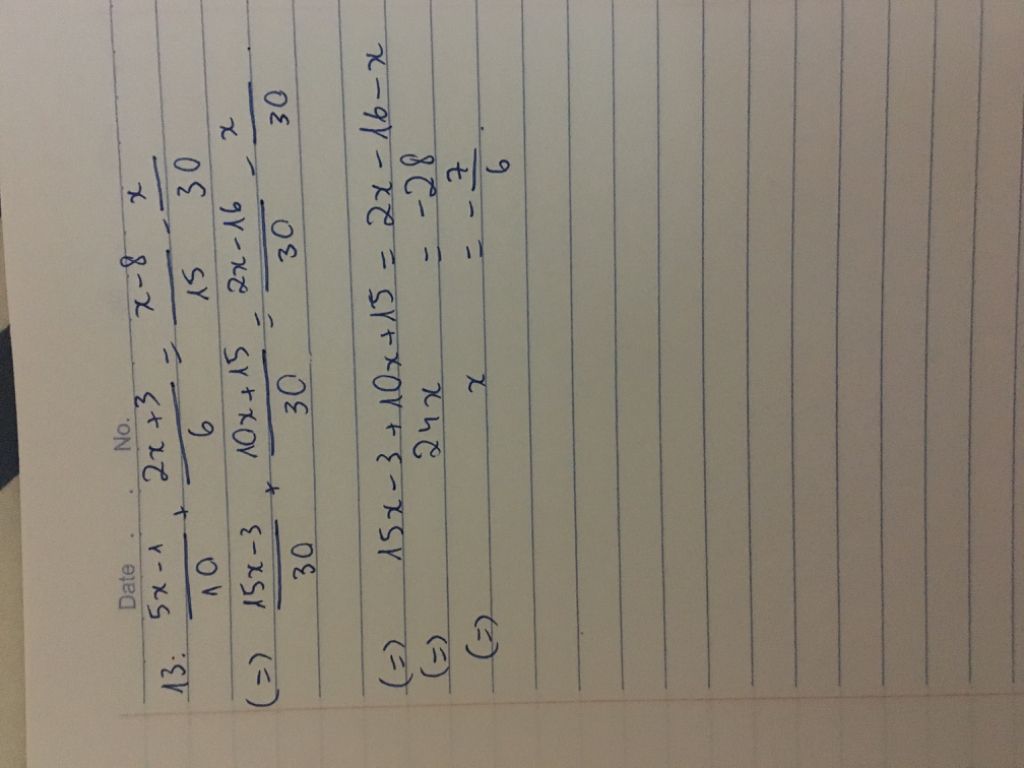 Date . . No.
13: (5x-1)/10 + (2x+3)/6 = (x-8)/15 - x/30
(=) (15x-3)/30 + (10x+15)/30 = (2x-16)/30 - x/30
(=) 15x-3+10x+15 = 2x-16-x
(=) 24x = -28
(=) x = -7/6